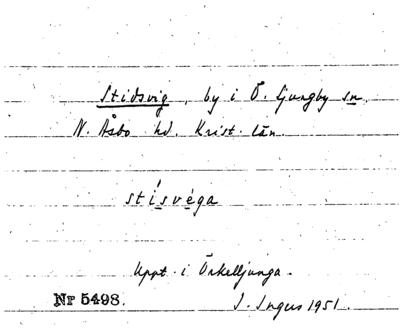 Stidsvig, by i Ö. Ljungby sn,
N. Åsbo hd. Krist. län.
stísvèga
Uppt. i Örkelljunga.
Nr 5498.
J. Ingers 1951.